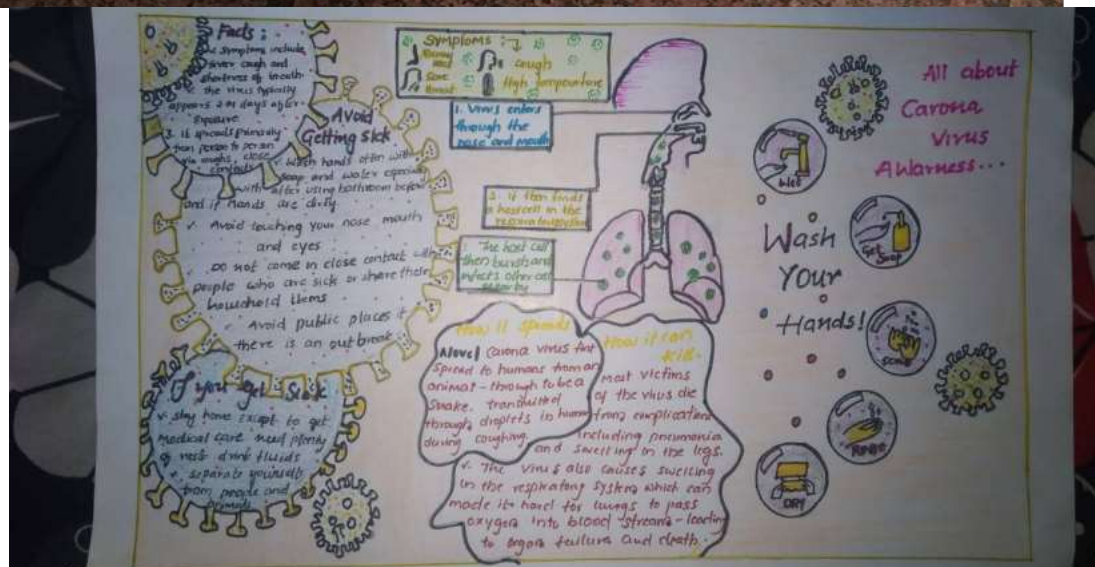 Facts :
symptoms include
fever cough and
shortness of breath
the virus typically
appears 2-14 days after
exposure
3. it spreads primarily
from person to person
via coughs, close
contacts
Avoid
Getting sick
✓ Wash hands often with
soap and water especially
with after using bathroom before
and if hands are dirty
✓ Avoid touching your nose mouth
and eyes
✓ Do not come in close contact with
people who are sick or share these
household items
✓ Avoid public places if
there is an outbreak
If you get Sick
✓ stay home except to get
Medical care need plenty
of rest drink fluids
✓ separate yourself
from people and
animals
Symptoms :
Runny
nose
cough
Sore
throat
High temperature
1. Virus enters
through the
nose and mouth
2. it then finds
a host cell in the
respiratory system
The host cell
then bursts and
infects other cell
nearby
How it spreads
A Novel Carona virus first
spread to humans from an
animal - through to be a
snake. transmitted
through droplets in human
during coughing.
How it can
kill.
most victims
of the virus die
from complication
including pneumonia
and swelling in the legs.
✓ The virus also causes swelling
in the respiratory system which can
made it hard for lungs to pass
oxygen into blood stream - leading
to organ failure and death.
All about
Carona
Virus
Awarness...
Wash
YOUR
Hands!
Wet
Get
Soap
Scrub
Rinse
DRY